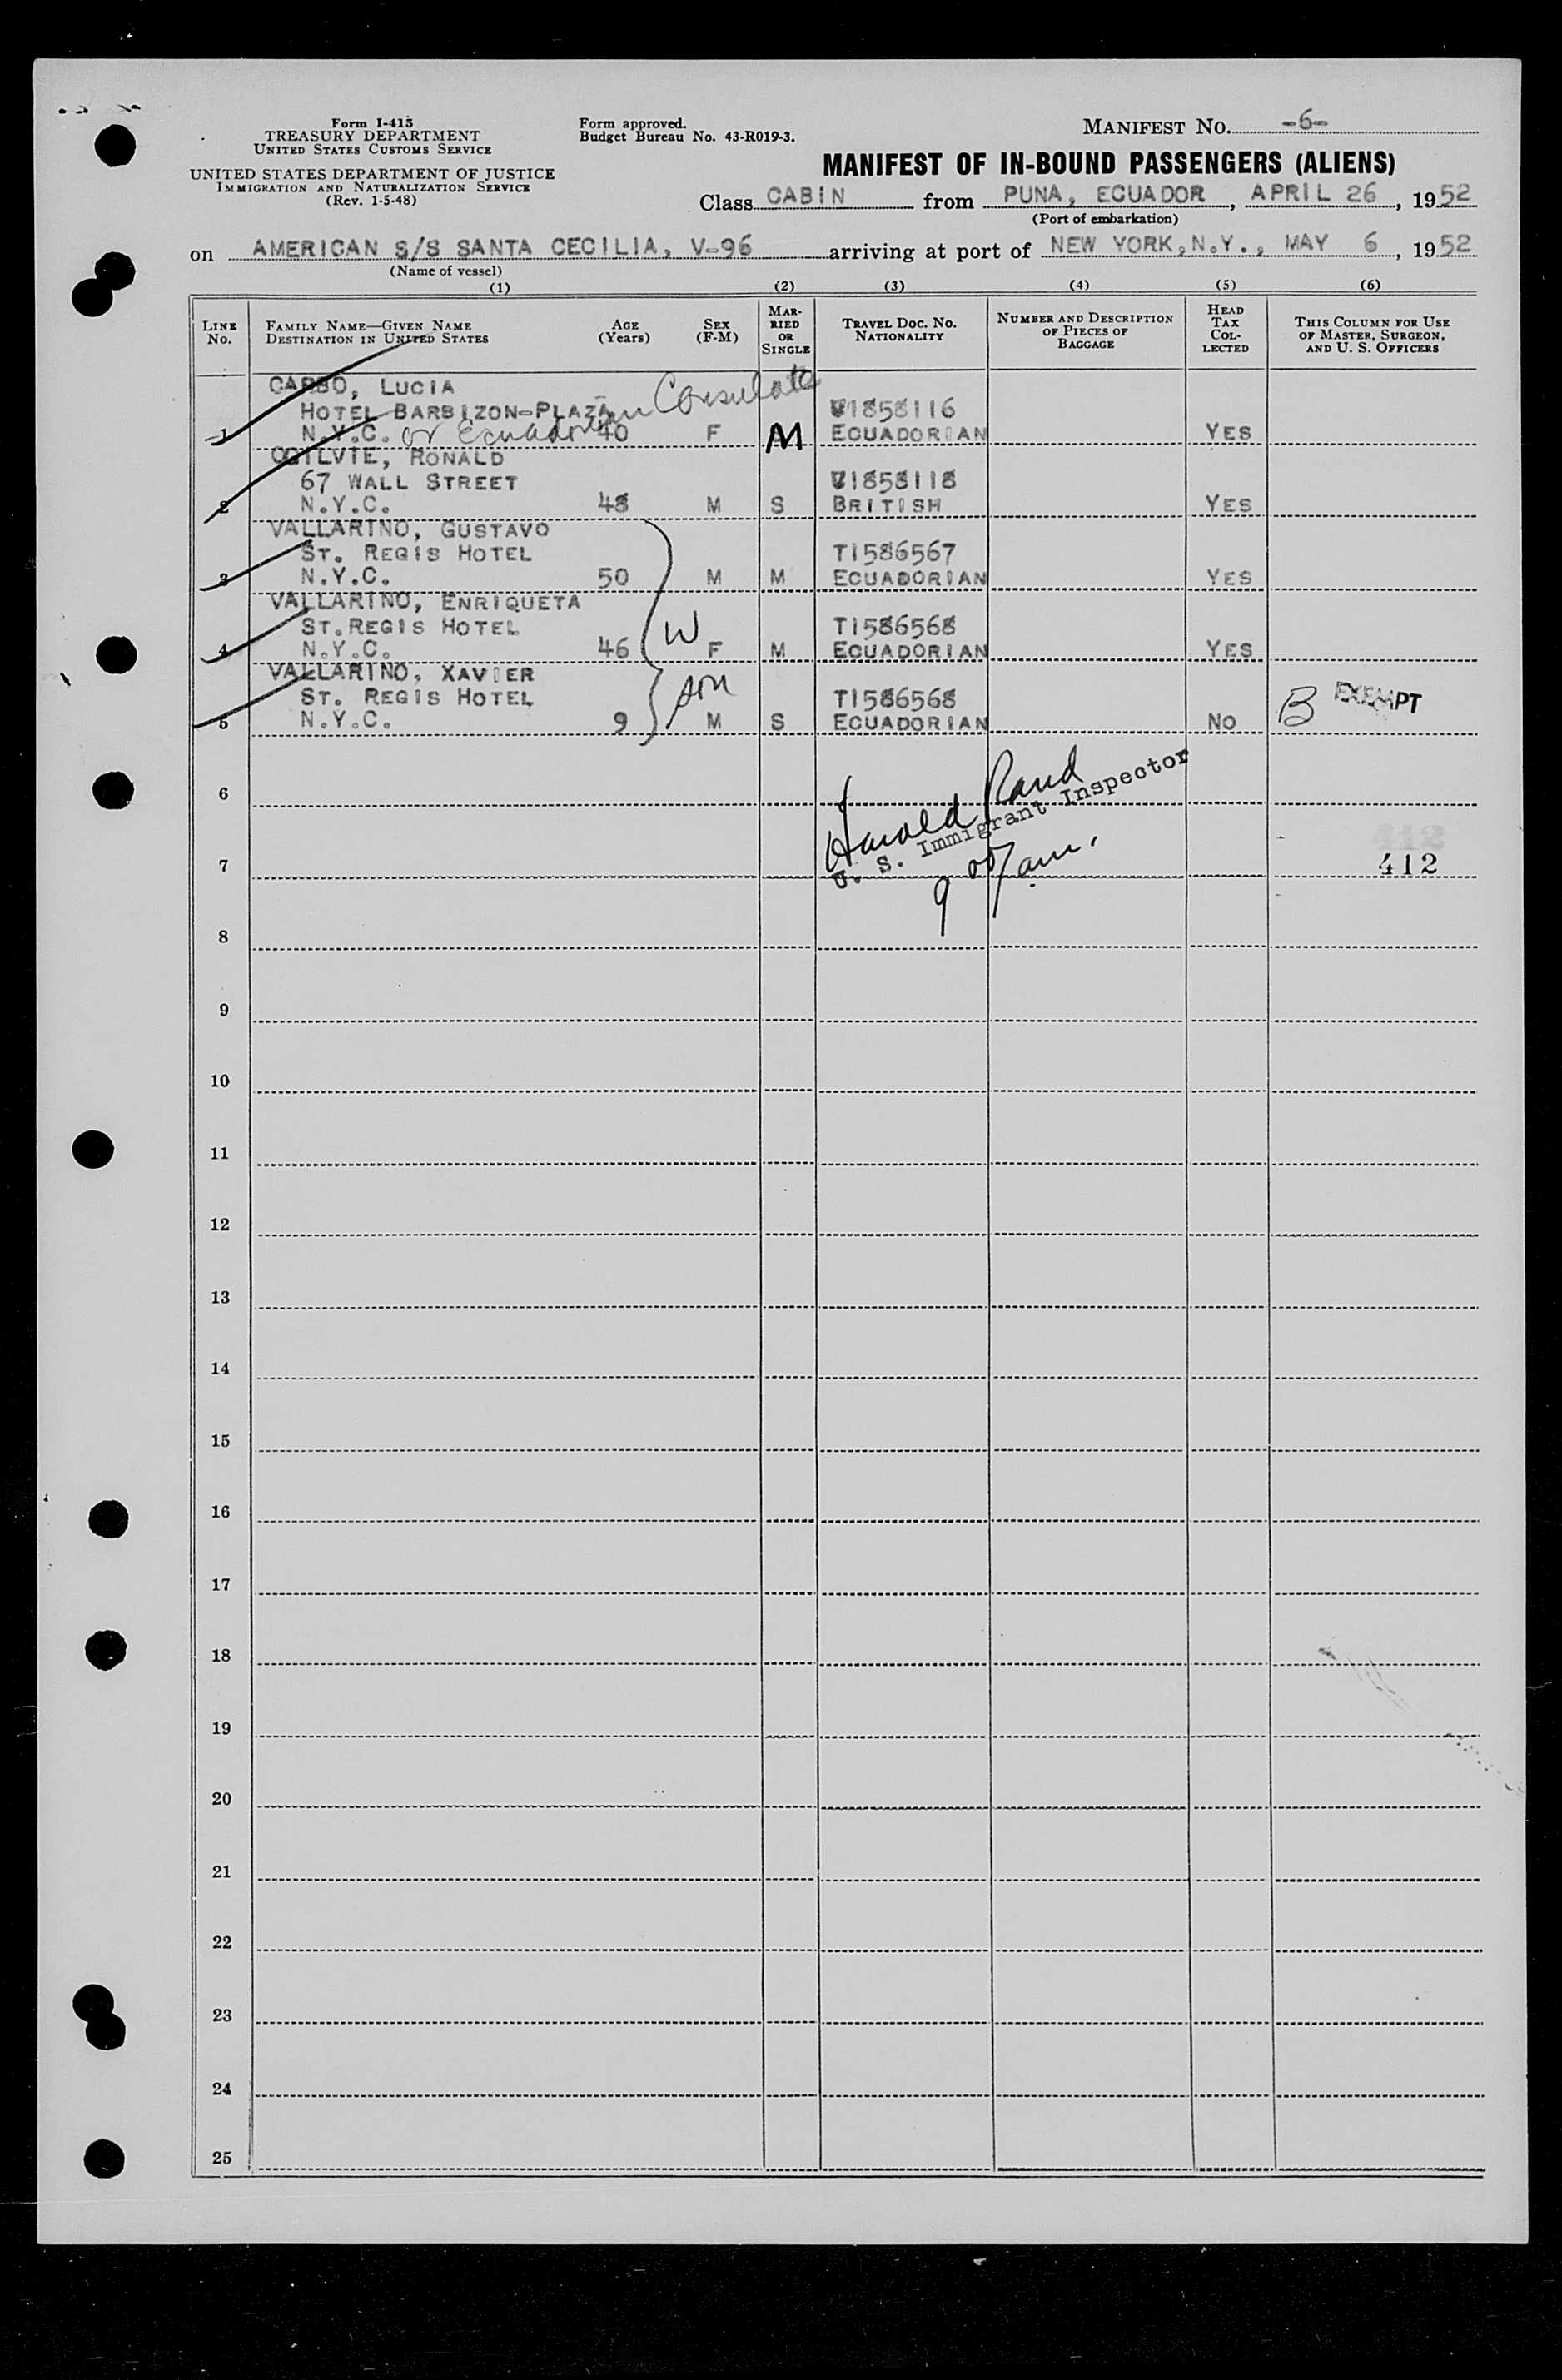 Form I-415
TREASURY DEPARTMENT
UNITED STATES CUSTOMS SERVICE
UNITED STATES DEPARTMENT OF JUSTICE
IMMIGRATION AND NATURALIZATION SERVICE
(Rev. 1-5-48)
Form approved.
Budget Bureau No. 43-R019-3.
MANIFEST NO. -6-
MANIFEST OF IN-BOUND PASSENGERS (ALIENS)
Class CABIN from PUNA, ECUADOR, APRIL 26, 1952
(Port of embarkation)
on AMERICAN S/S SANTA CECILIA, V-96 arriving at port of NEW YORK, N.Y., MAY 6, 1952
(Name of vessel)
(1) (2) (3) (4) (5) (6)
LINE No. FAMILY NAME—GIVEN NAME DESTINATION IN UNITED STATES AGE (Years) SEX (F-M) MARRIED OR SINGLE TRAVEL DOC. NO. NATIONALITY NUMBER AND DESCRIPTION OF PIECES OF BAGGAGE HEAD TAX COLLECTED THIS COLUMN FOR USE OF MASTER, SURGEON, AND U. S. OFFICERS
CARBO, LUCIA
HOTEL BARBIZON-PLAZA V1858116
1 N.Y.C. or Ecuadorian Consulate 40 F M ECUADORIAN YES
OGILVIE, RONALD
67 WALL STREET V1858118
2 N.Y.C. 48 M S BRITISH YES
VALLARINO, GUSTAVO
ST. REGIS HOTEL T1586567
3 N.Y.C. 50 M M ECUADORIAN YES
VALLARINO, ENRIQUETA
ST. REGIS HOTEL T1586568
4 N.Y.C. 46 W F M ECUADORIAN YES
VALLARINO, XAVIER
ST. REGIS HOTEL son T1586568 B EXEMPT
5 N.Y.C. 9 M S ECUADORIAN NO
6
Harold Rand
U. S. Immigrant Inspector
7 412
9 00/am.
8
9
10
11
12
13
14
15
16
17
18
19
20
21
22
23
24
25